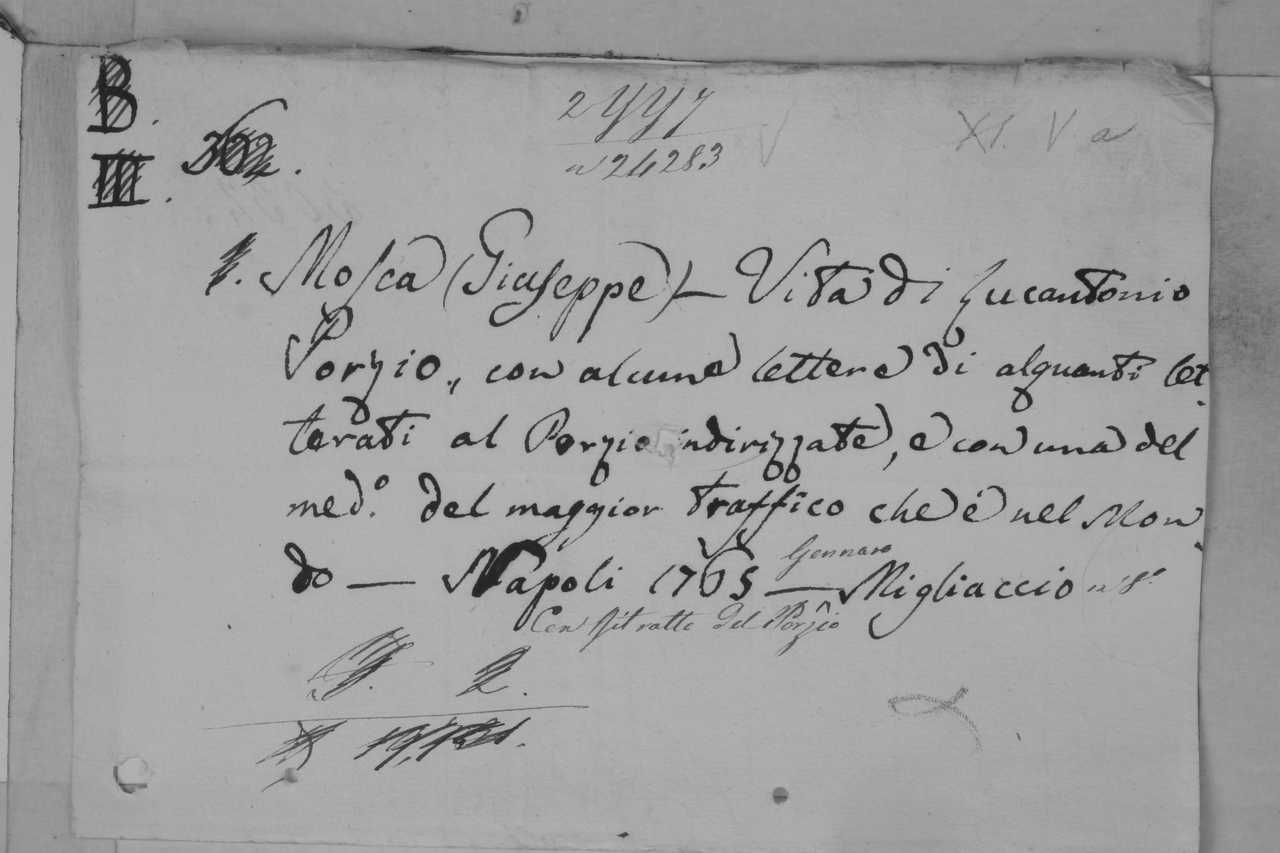 B.
III. 302.
2997
a 24283
XI. V. a
1. Mosca (Giuseppe) – Vita di Lucantonio
Porzio, con alcune lettere di alquanti let
terati al Porzio indirizzate, e con una del
med.º del maggior traffico che è nel Mon
do — Napoli 1765 — Gennaro Migliaccio in 8º
Con ritratto del Porzio
2.